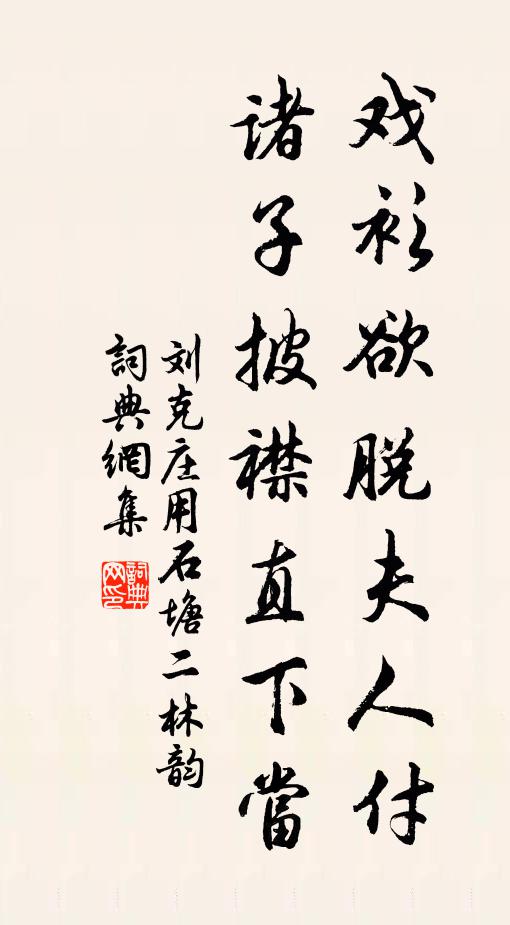 戏衫欲脱夫人付
诸子披襟直下當
刘克庄用石塘二林韵
詞典網集
詞典网印